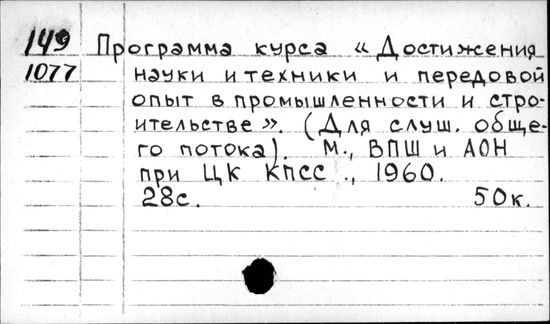 149 Программа курса „Достижения
1077 науки и техники и передовой
опыт в промышленности и стро-
ительстве". (Для слуш. обще-
го потока). М., ВПШ и АОН
при ЦК КПСС., 1960.
28с. 50к.